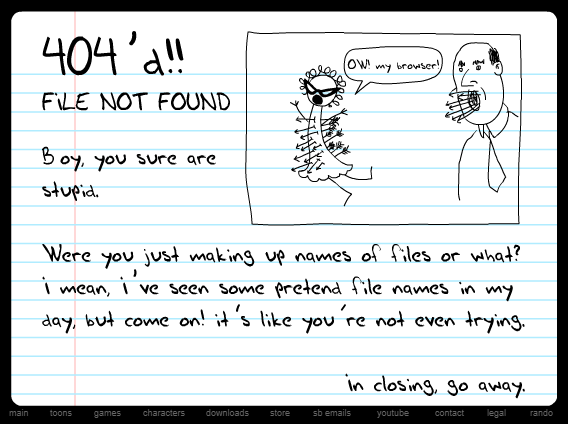 404'd!!
FiLE NOT FOUND
OW! my browser!
Boy, you sure are
stupid.
Were you just making up names of files or what?
i mean, i've seen some pretend file names in my
day, but come on! it's like you're not even trying.
in closing, go away.
main toons games characters downloads store sb emails youtube contact legal rando